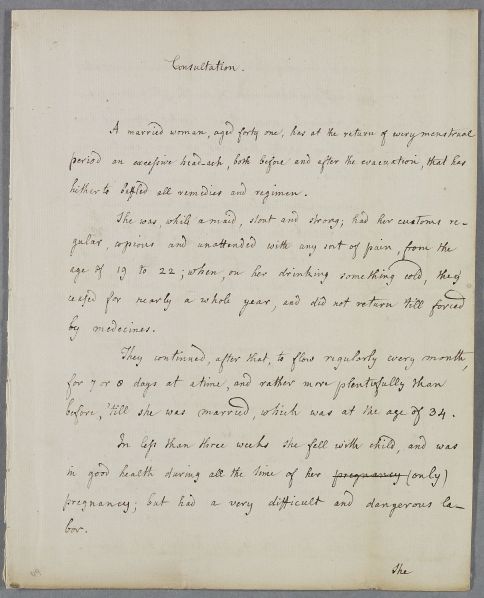 Consultation.
A married woman, aged forty one, has at the return of every menstrual
period an excessive head-ach, both before and after the evacuation, that has
hitherto baffled all remedies and regimen.
She was, while a maid, stout and strong; had her customs re-
gular, copious and unattended with any sort of pain, from the
age of 19 to 22; when, on her drinking something cold, they
ceased for nearly a whole year, and did not return till forced
by medecines.
They continued, after that, to flow regularly every month,
for 7 or 8 days at a time, and rather more plentifully than
before, 'till she was married, which was at the age of 34.
In less than three weeks she fell with child, and was
in good health during all the time of her pregnancy (only)
pregnancy; but had a very difficult and dangerous la-
bor.
The